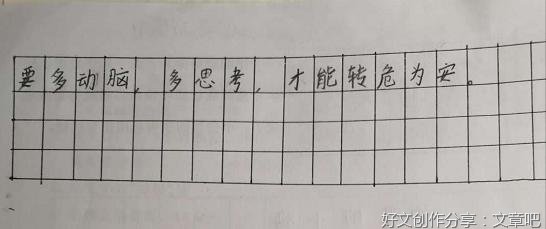 要多动脑，多思考，才能转危为安。
好文创作分享：文章吧